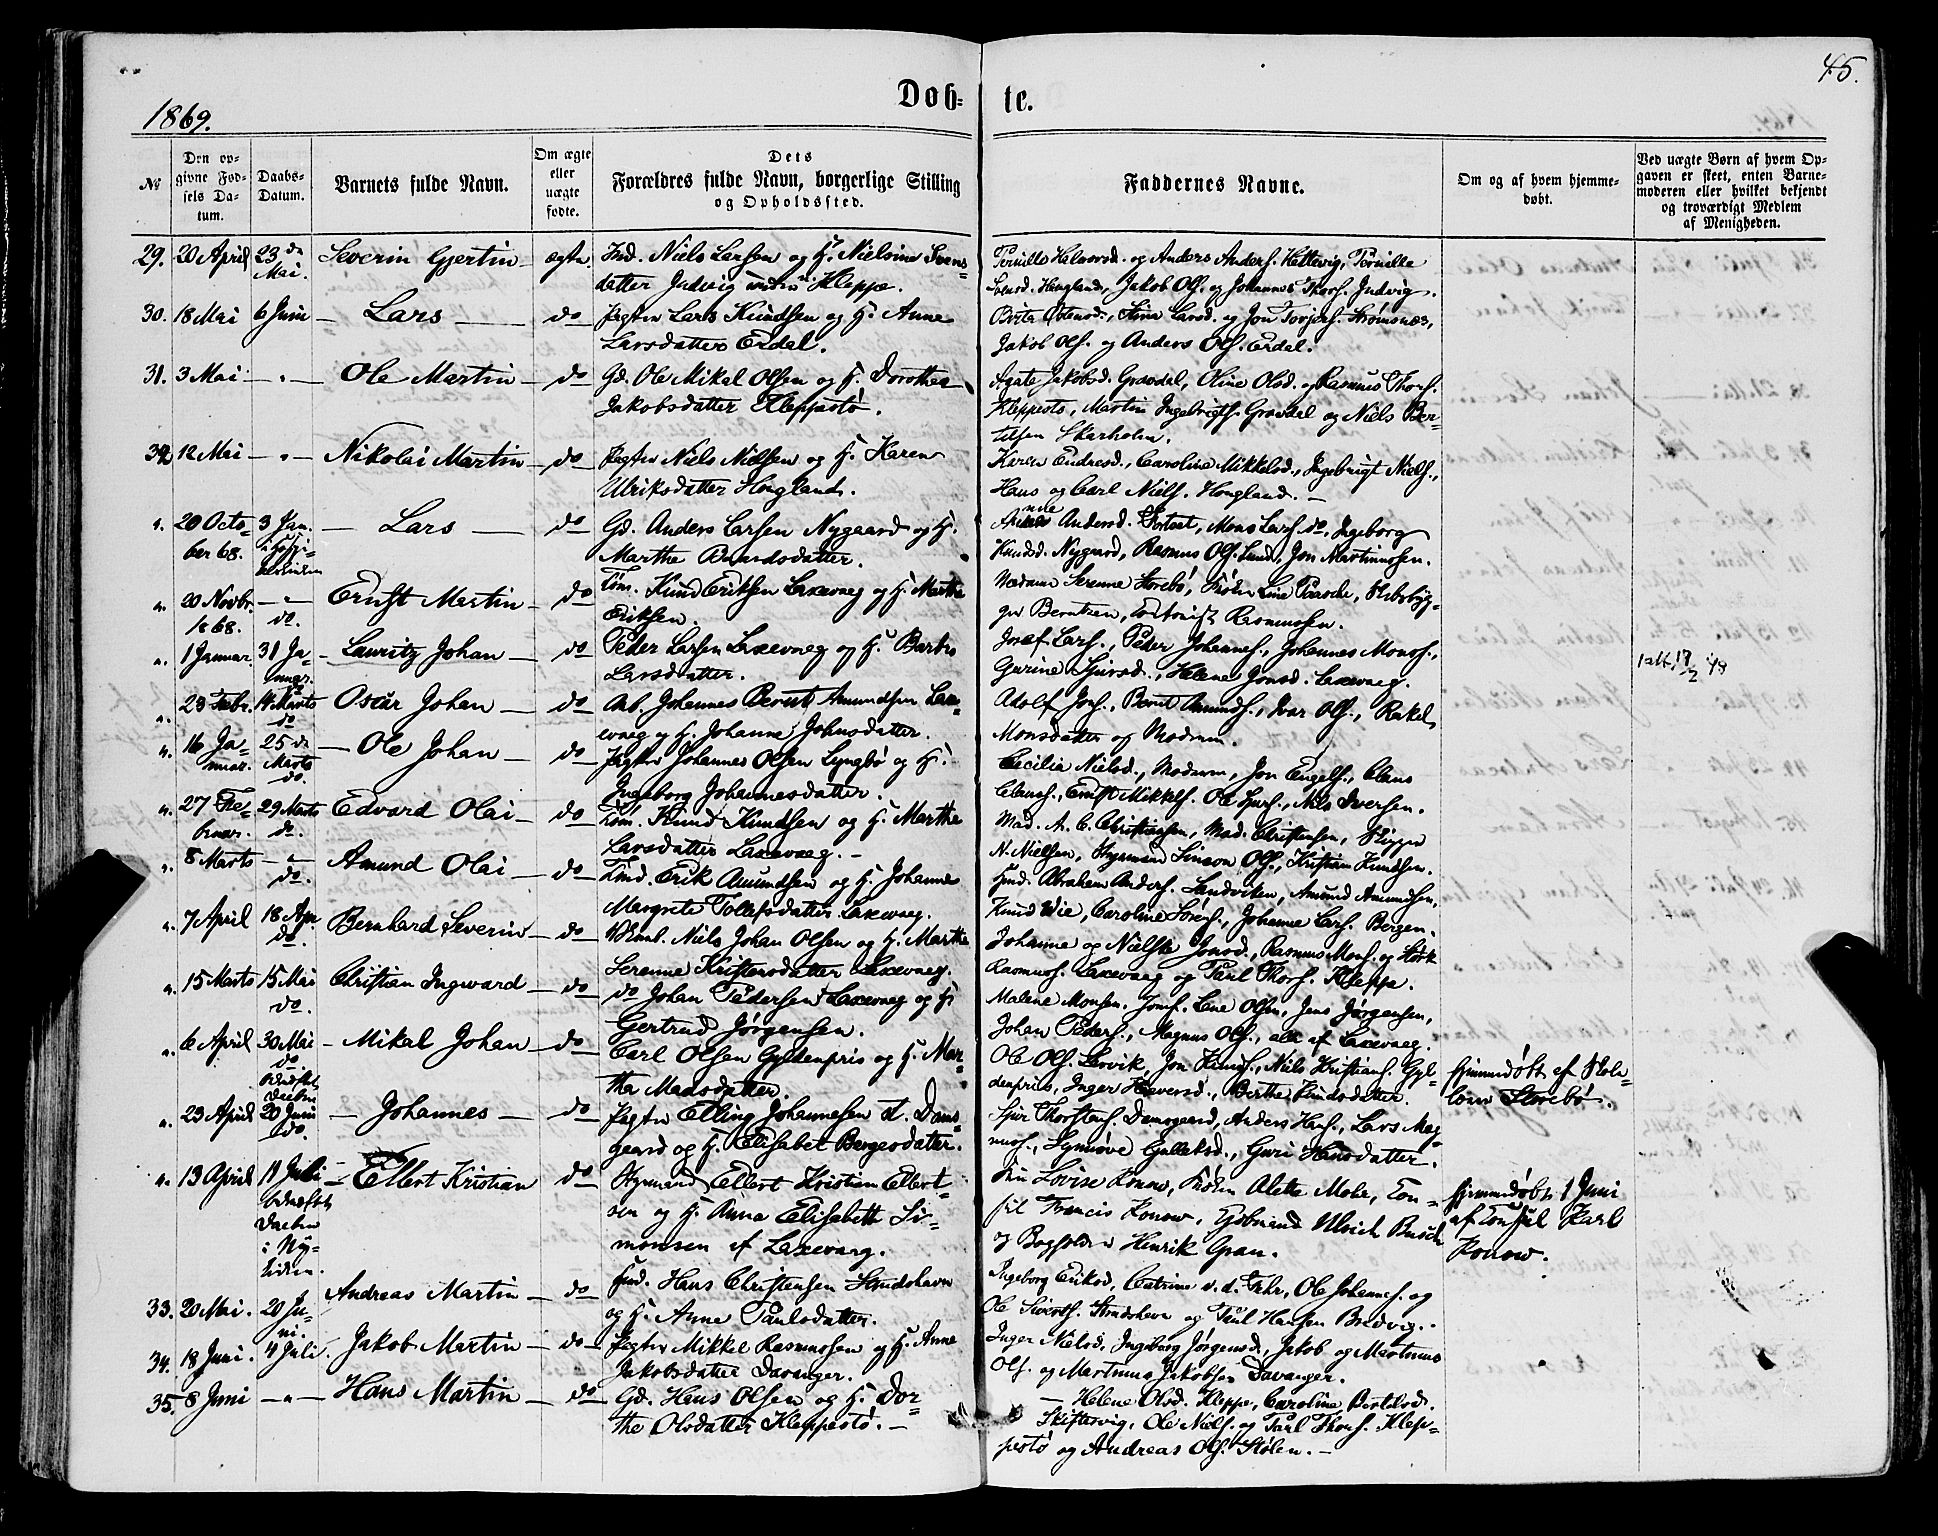 45.
1869.
Döb-
te.
No
Den op-
givne Fød-
sels Da-
tum.
Daabs-
Datum.
Barnets fulde Navn.
Om ægte
eller
uægte
fødte.
Dets
Forældres fulde Navn, borgerlige Stilling
og Opholdssted.
Faddernes Navne.
Om og af hvem hjemme-
døbt.
Ved uægte Børn af hvem Op-
gaven er skeet, enten Barne-
moderen eller hvilket bekjendt
og troværdigt Medlem
af Menigheden.
29. 20 April 23 do Mai. Severin Gjertin ægte. Ind. Niels Larsen og H. Nielsine Svens-
datter Judvig Kleppe.
Pernille Halvorsd. og Anders Anders. Hettevig, Pernille
Svensd. Hougland, Jakob Ols. og Johannes Thors. Judvig.
30. 18 Mai 6 Juni Lars do Jagter Lars Knudsen og H. Anne
Larsdatter Erdal.
Brita Ostensd., Stine Larsd. og Jon Torjers. Strømsnæs,
Jakob Ols. og Anders Ols. Erdal.
31. 3 Mai — " — Ole Martin do Gd. Ole Mikal Olsen og H. Dorothea
Jakobsdatter Kleppestø.
Agate Jakobsd. Gravdal, Oline Olsd. og Rasmus Thors.
Kleppestø, Martin Ingebrigts. Gravdal og Niels Ber-
telsen Skarholm.
32. 12 Mai — " — Nikolai Martin do Jagter Niels Nielsen og H. Karen
Ulriksdatter Hougland.
Karen Endresd., Caroline Mikkelsd., Ingebrigt Niels.,
Hans og Carl Niels. Hougland. —
20 Octo-
ber 68. 3 Jan. Lars do Gd. Anders Larsen Nygaard og H.
Marthe Baardsdatter.
Andersd. Fortvet, Mons Lars. do, Ingeborg
Knudsd. Nygaard, Rasmus Ols. Lund, Jon Martinusen.
20 Novbr.
1868. — " — do. Ernst Martin do Tøm. Knud Eriksen Laxevaag og H. Marthe
Eriksen.
Madame Serenne Storebø, Frøken Line Paasche, Skibsbyg-
ger Berntzen, Rasmussen.
1 Januar 31 Ja-
nuar. Lauritz Johan do Peder Larsen Laxevaag og H. Barbro
Larsdatter.
Josef Lars., Peder Johannes., Johannes Monss.,
Gurine Sjursd., Helene Jonsd. Laxevaag.
23 Febr. 14 Marts
do Oscar Johan do Arb. Johannes Bernt Amundsen Lax-
evaag og H. Johanne Johnsdatter.
Adolf Jons., Bernt Amunds., Ivar Ols., Rakel
Monsdatter og Modren.
16 Ja-
nuar. 25 do
Marts
do. Ole Johan do Jagter Johannes Olsen Lyngbø og H.
Ingeborg Johannesdatter.
Cecilia Nielsd., Modren, Jon Engels., Claus
Claus., Ernst Mikkels. Ole Sjurs., Nils Iversen.
27 Fe-
bruar. 29 Marts
do. Edvard Olai do Tøm. Knud Knudsen og H. Marthe
Larsdatter Laxevaag. —
Mad. A. C. Christiansen, Mad. Christensen, Skipper
N. Nielsen, Styrmand Simson Ols., Kristian Knudsen.
8 Marts — " —
do. Amund Olai do Tind. Erik Amundsen og H. Johanne
Margrete Tollefsdatter Laxevaag.
Hmd. Abraham Anders. Sandviken, Amund Amundsen,
Knud Wie, Caroline Sørens., Johanne Lars. Bergen.
7 April 18 Apr.
do. Bernhard Severin do Niels Johan Olsen og H. Marthe
Serenne Kristensdatter Laxevaag.
Johanne og Nielsine Jonsd., Rasmus Mons. og Stork
Rasmus. Laxevaag og Paul Thors. Kleppe.
15 Marts 15 Mai
do. Christian Ingward do do Johan Pedersen Laxevaag og H.
Gertrud Jørgensen.
Malene Monsen, Jomf. Lene Olsen, Jens Jørgensen,
Johan Peders., Magnus Ols., alle af Laxevaag.
6 April 30 Mai
do Mikal Johan do Carl Olsen Gyldenpris og H. Mar-
the Madsdatter.
Ole Ols. Lervik, Jon Knuds., Niels Kristians. Gyl-
denpris, Inger Haversd., Berthe Lindsdatter.
hjemmedöbt af Skole-
lærer Storebø.
23 April 20 Juni
do. Johannes do Jagter Elling Johannesen st. Dams-
gaard og H. Elisabet Børgesdatter.
Sjur Thorstens. Damsgaard, Anders Hans., Lars Mag-
nus., Synnöve Gulleksd., Guri Hansdatter.
13 April 11 Juli
bekræftet
Daaben
i Ny-
kirken. Ellert Kristian do Styrmand Ellert Kristian Ellert-
sen og H. Anna Elisabeth Si-
monsen af Laxevaag.
Fru Lovise Konow, Frøken Alette Mohr, Con-
sul Francis Konow, Kjöbmand Ulrich Busch
og Bogholder Henrik Gran.
hjemmedöbt 1 Juni
af Consul Karl
Konow.
33. 20 Mai. 20 Ju-
ni. Andreas Martin do Ind. Hans Christensen Strudshavn
og H. Anne Paulsdatter.
Ingeborg Eriksd., Catrine v. d. Fehr, Ole Johannes. og
Ole Siverts. Strudshavn og Paul Hansen Bredvig.
34. 18 Juni. 4 Juli. Jakob Martin do Jagter Mikkel Rasmussen og H. Anne
Jakobsdatter Davanger.
Inger Nielsd., Ingeborg Jørgensd., Jakob og Martinus
Ols. og Martinus Jakobsen Davanger.
35. 8 Juni — " — Hans Martin do Gd. Hans Olsen og H. Dor-
the Olsdatter Kleppestø. —
Helene Olsd. Kleppe, Caroline Bertelsd.
Skiftesvig, Ole Niels. og Paul Thors. Klep-
pestø og Andreas Ols. Stølen. —